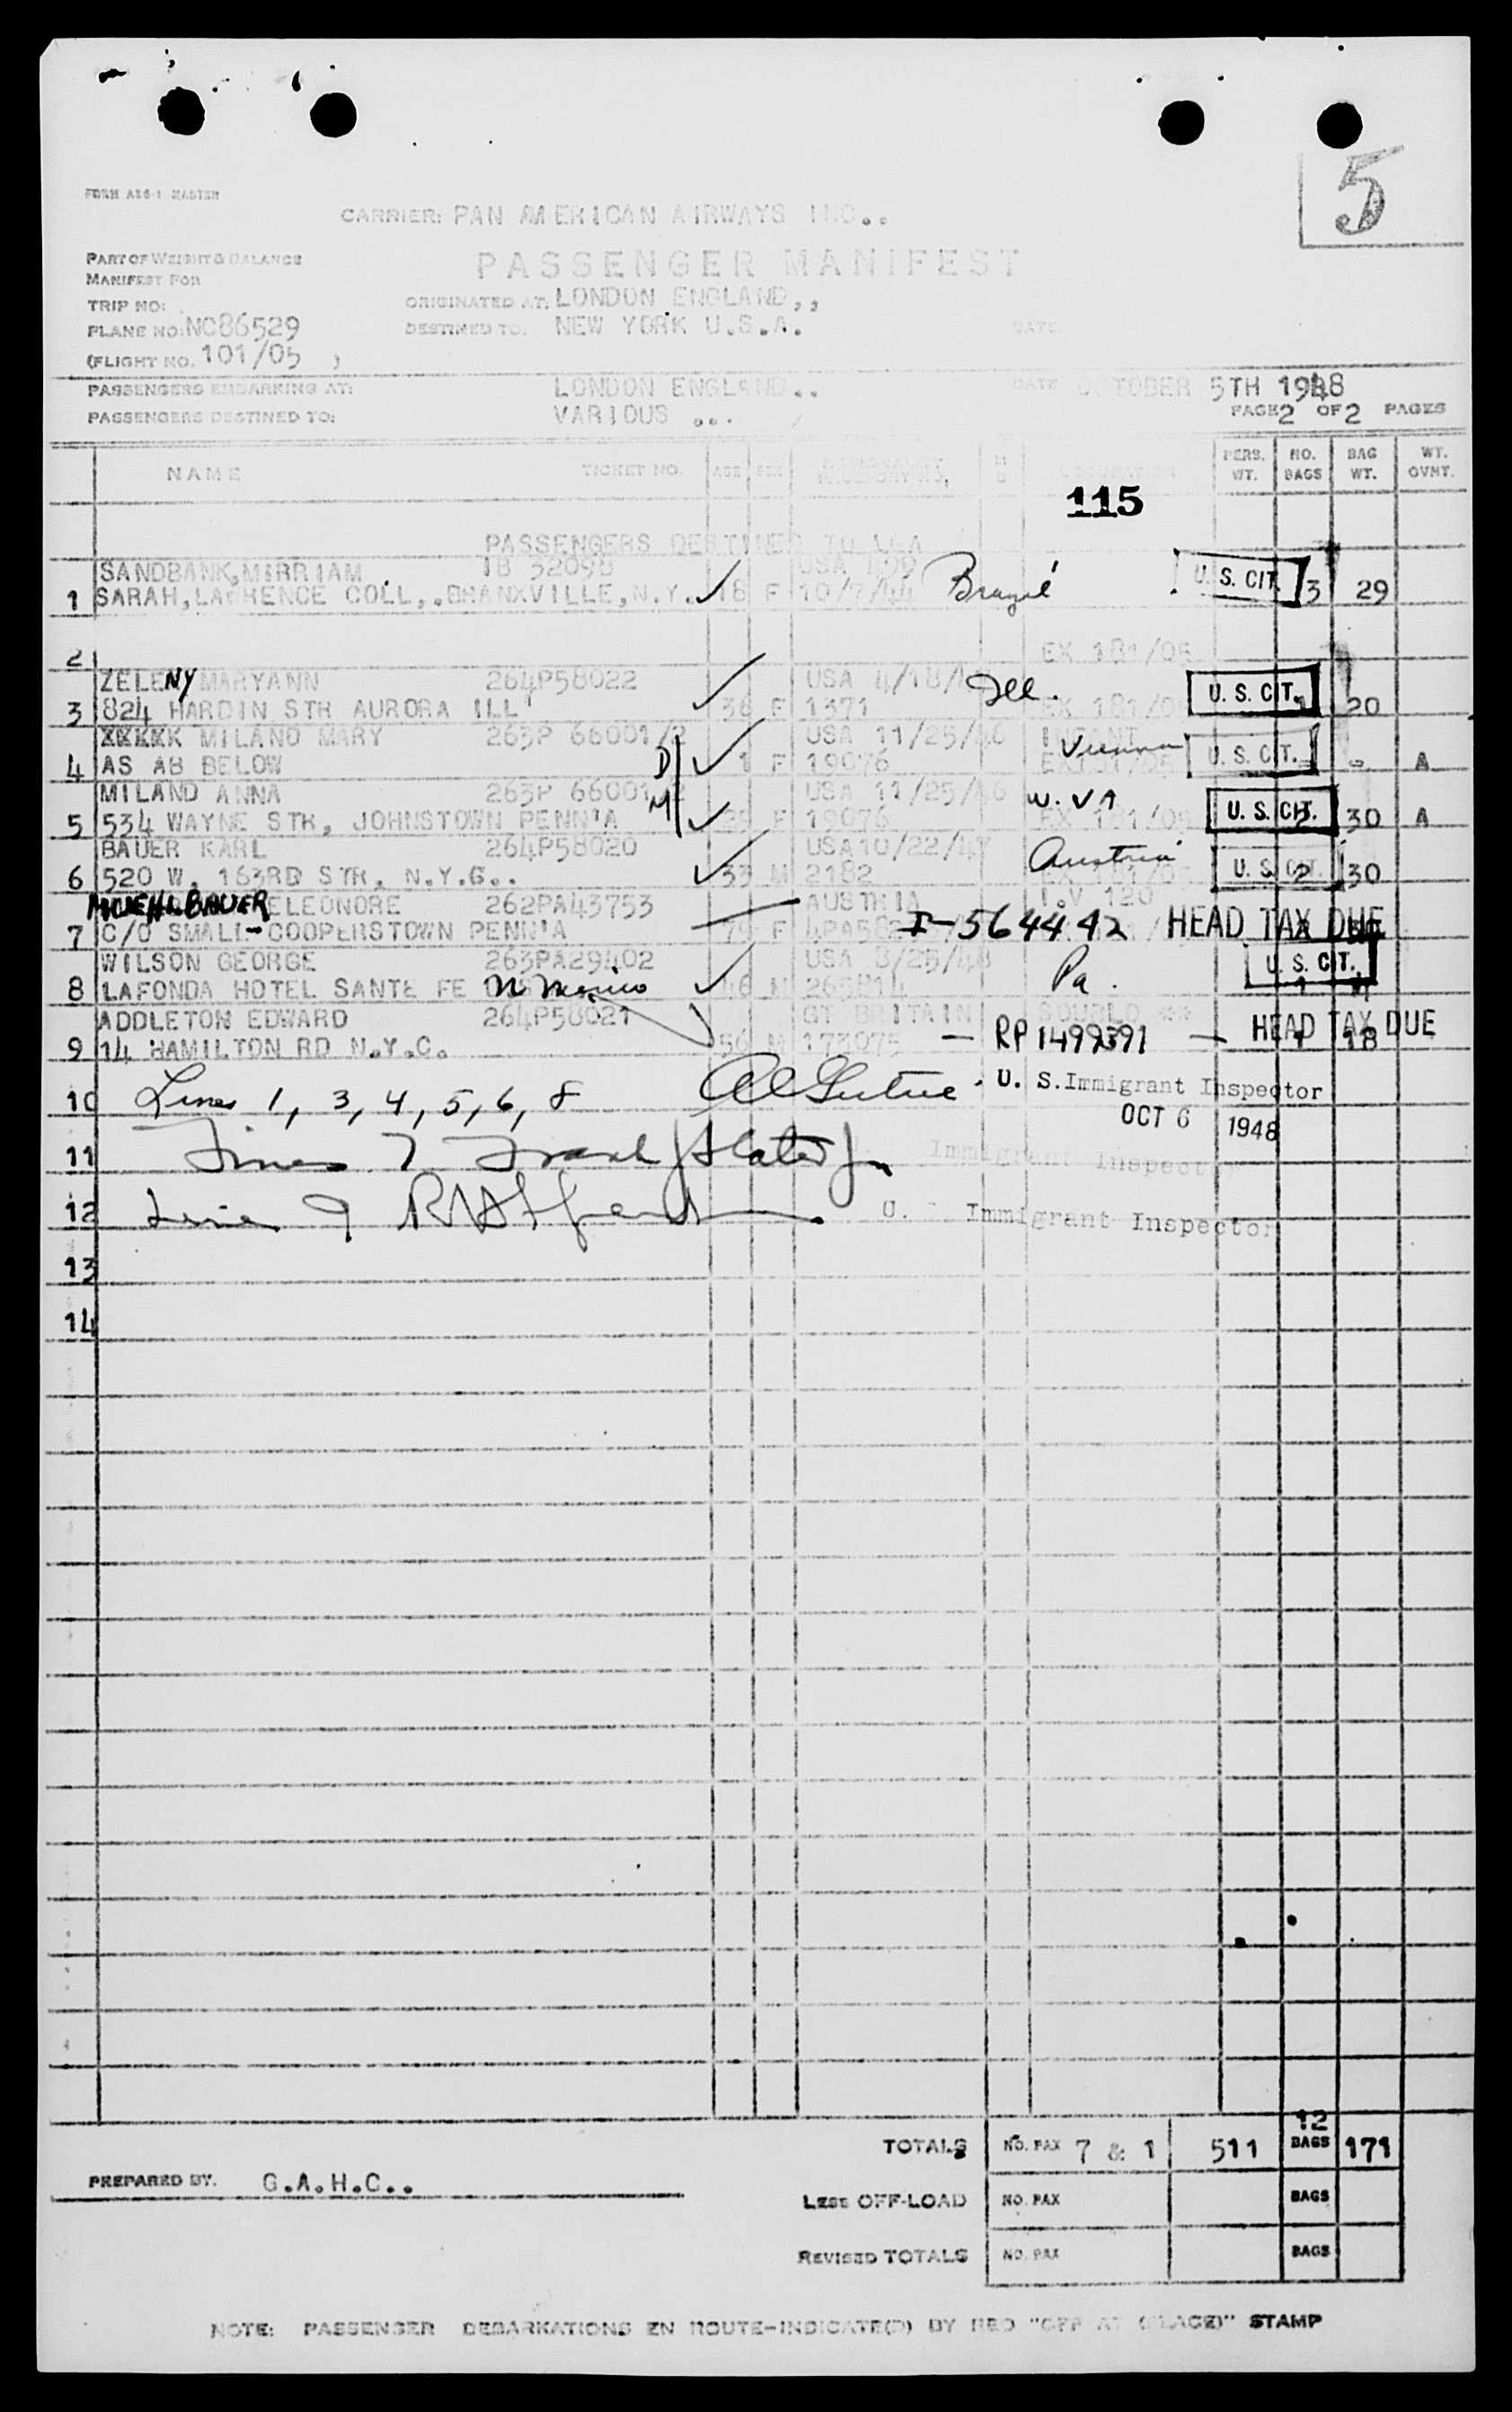 5
FORM AS6-1 MASTER
CARRIER: PAN AMERICAN AIRWAYS INC..
PART OF WEIGHT & BALANCE
MANIFEST FOR
PASSENGER MANIFEST
TRIP NO:
ORIGINATED AT: LONDON ENGLAND,,
PLANE NO: NC86529
DESTINED TO. NEW YORK U.S.A.
DATE
(FLIGHT NO. 101/05 )
PASSENGERS EMBARKING AT: LONDON ENGLAND.. DATE OCTOBER 5TH 1948
PASSENGERS DESTINED TO: VARIOUS ... PAGE 2 OF 2 PAGES
NAME TICKET NO. AGE SEX PERS. WT. NO. BAGS BAG WT. WT. OVMT.
115
PASSENGERS DESTINED TO LGA
SANDBANK, MIRRIAM 1B 32098 USA 439
1 SARAH, LAWRENCE COLL,. BRANXVILLE, N.Y. 18 F 10/7/44 Brazil U. S. CIT. 3 29
2 EX 181/05
ZELENY MARYANN 264P58022 USA 4/18/
3 824 HARDIN STR AURORA ILL 36 F 1371 Ill. EX 181/05 U. S. CIT. 1 20
XXXXK MILANO MARY 263P 66001/2 USA 11/25/46 INFANT
4 AS AB BELOW D 1 F 19076 Vienna EX181/05 U. S. CIT. - A
MILANO ANNA 263P 66001/2 USA 11/25/46
5 534 WAYNE STR, JOHNSTOWN PENN'A M 29 F 19076 W. VA EX 181/05 U. S. CIT. 30 A
BAUER KARL 264P58020 USA 10/22/47
6 520 W. 163RD STR, N.Y.C.. 33 M 2182 Austria EX 181/05 U. S. CIT. 2 30
MUEHLBAUER ELEONORE 262PA43753 AUSTRIA I.V 120
7 C/O SMALL-COOPERSTOWN PENN'A 79 F I-564442 HEAD TAX DUE
WILSON GEORGE 263PA29402 USA 8/25/48
8 LAFONDA HOTEL SANTE FE N Mexico 46 M 265814 Pa. U. S. CIT. 1
ADDLETON EDWARD 264P58021 GT BRITAIN
9 14 HAMILTON RD N.Y.C. 56 M 173075 — RP 1499391 — HEAD TAX DUE 1 18
10 Lines 1, 3, 4, 5, 6, 8 U. S. Immigrant Inspector
OCT 6 1948
11 Lines 7 Frank J Slater Jr Immigrant Inspector
12 Line 9 U. Immigrant Inspector
13
14
12
TOTALS NO. PAX 7 & 1 511 BAGS 171
PREPARED BY. G.A.H.C..
LESS OFF-LOAD NO. PAX BAGS
REVISED TOTALS NO. PAX BAGS
NOTE: PASSENGER DEBARKATIONS EN ROUTE-INDICATE(D) BY RED "OFF AT (PLACE)" STAMP